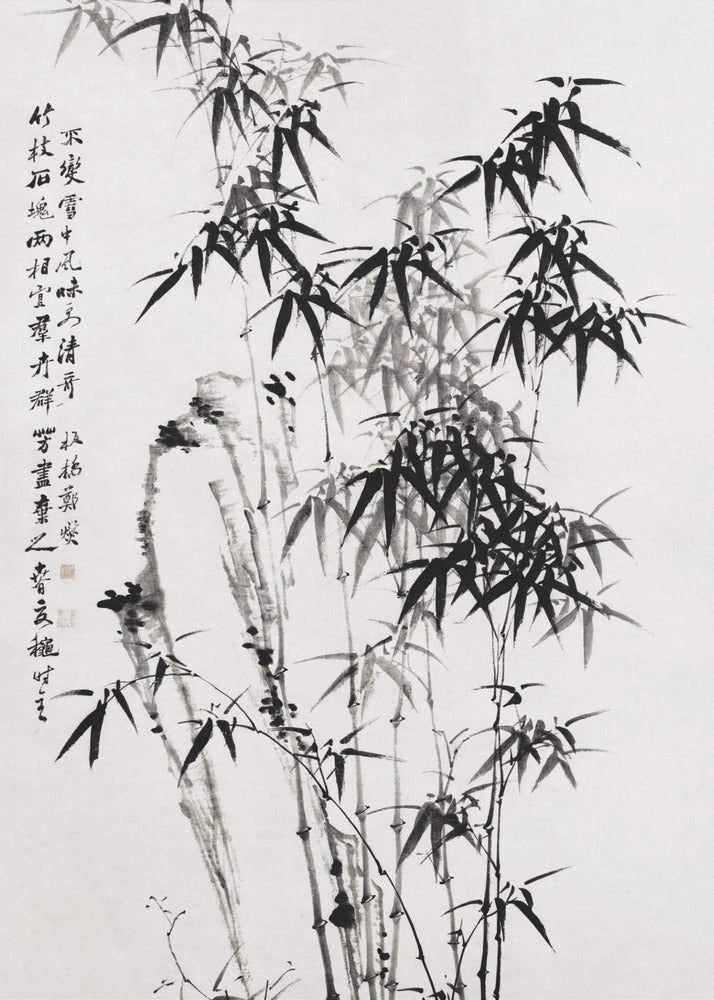 竹枝石塊两相宜羣卉群芳盡棄之春夏穐時全
不變雪中風味更清奇 板橋鄭燮